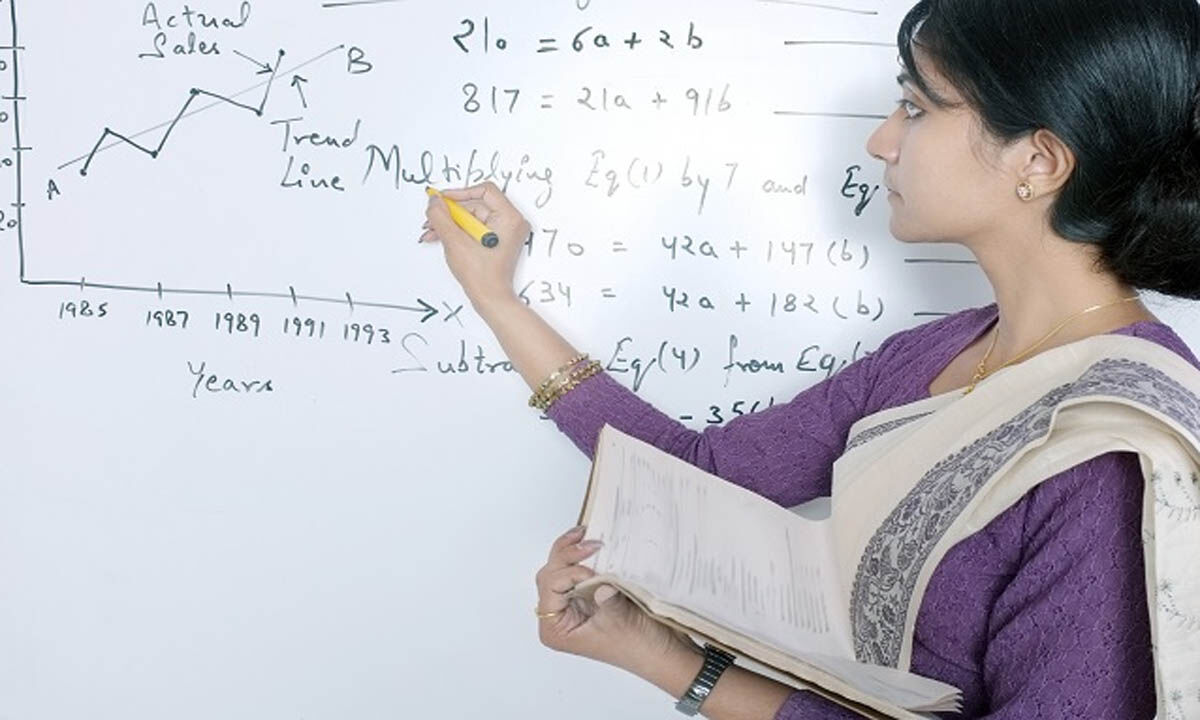 Actual
Sales
B
Trend
Line
A
20
1985 1987 1989 1991 1993 X
Years
210 = 6a + 2b
817 = 21a + 91b
Multiplying Eq(1) by 7 and Eq
470 = 42a + 147(b)
634 = 42a + 182(b)
Subtra Eq(4) from Eq(
- 35(